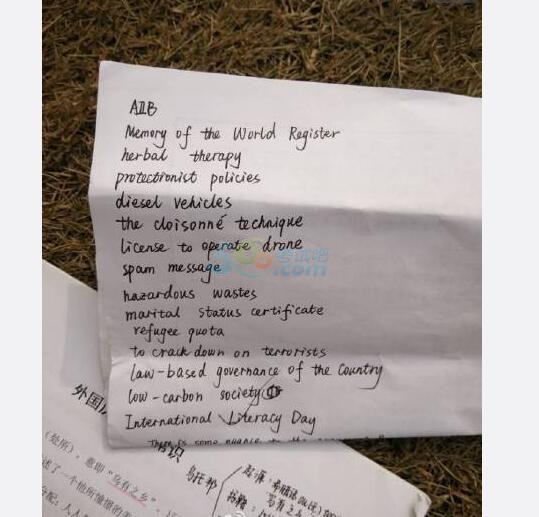 AIIB
Memory of the World Register
herbal therapy
protectionist policies
diesel vehicles
the cloisonné technique
license to operate drone
spam message
考试吧
.com
hazardous wastes
marital status certificate
refugee quota
to crack down on terrorists
law-based governance of the Country
low-carbon society
International Literacy Day
There is some nuance
外国
识
处所),意即"乌有之乡",
述了一个他所憧憬的美
乌托邦
起源:希腊语
书籍: